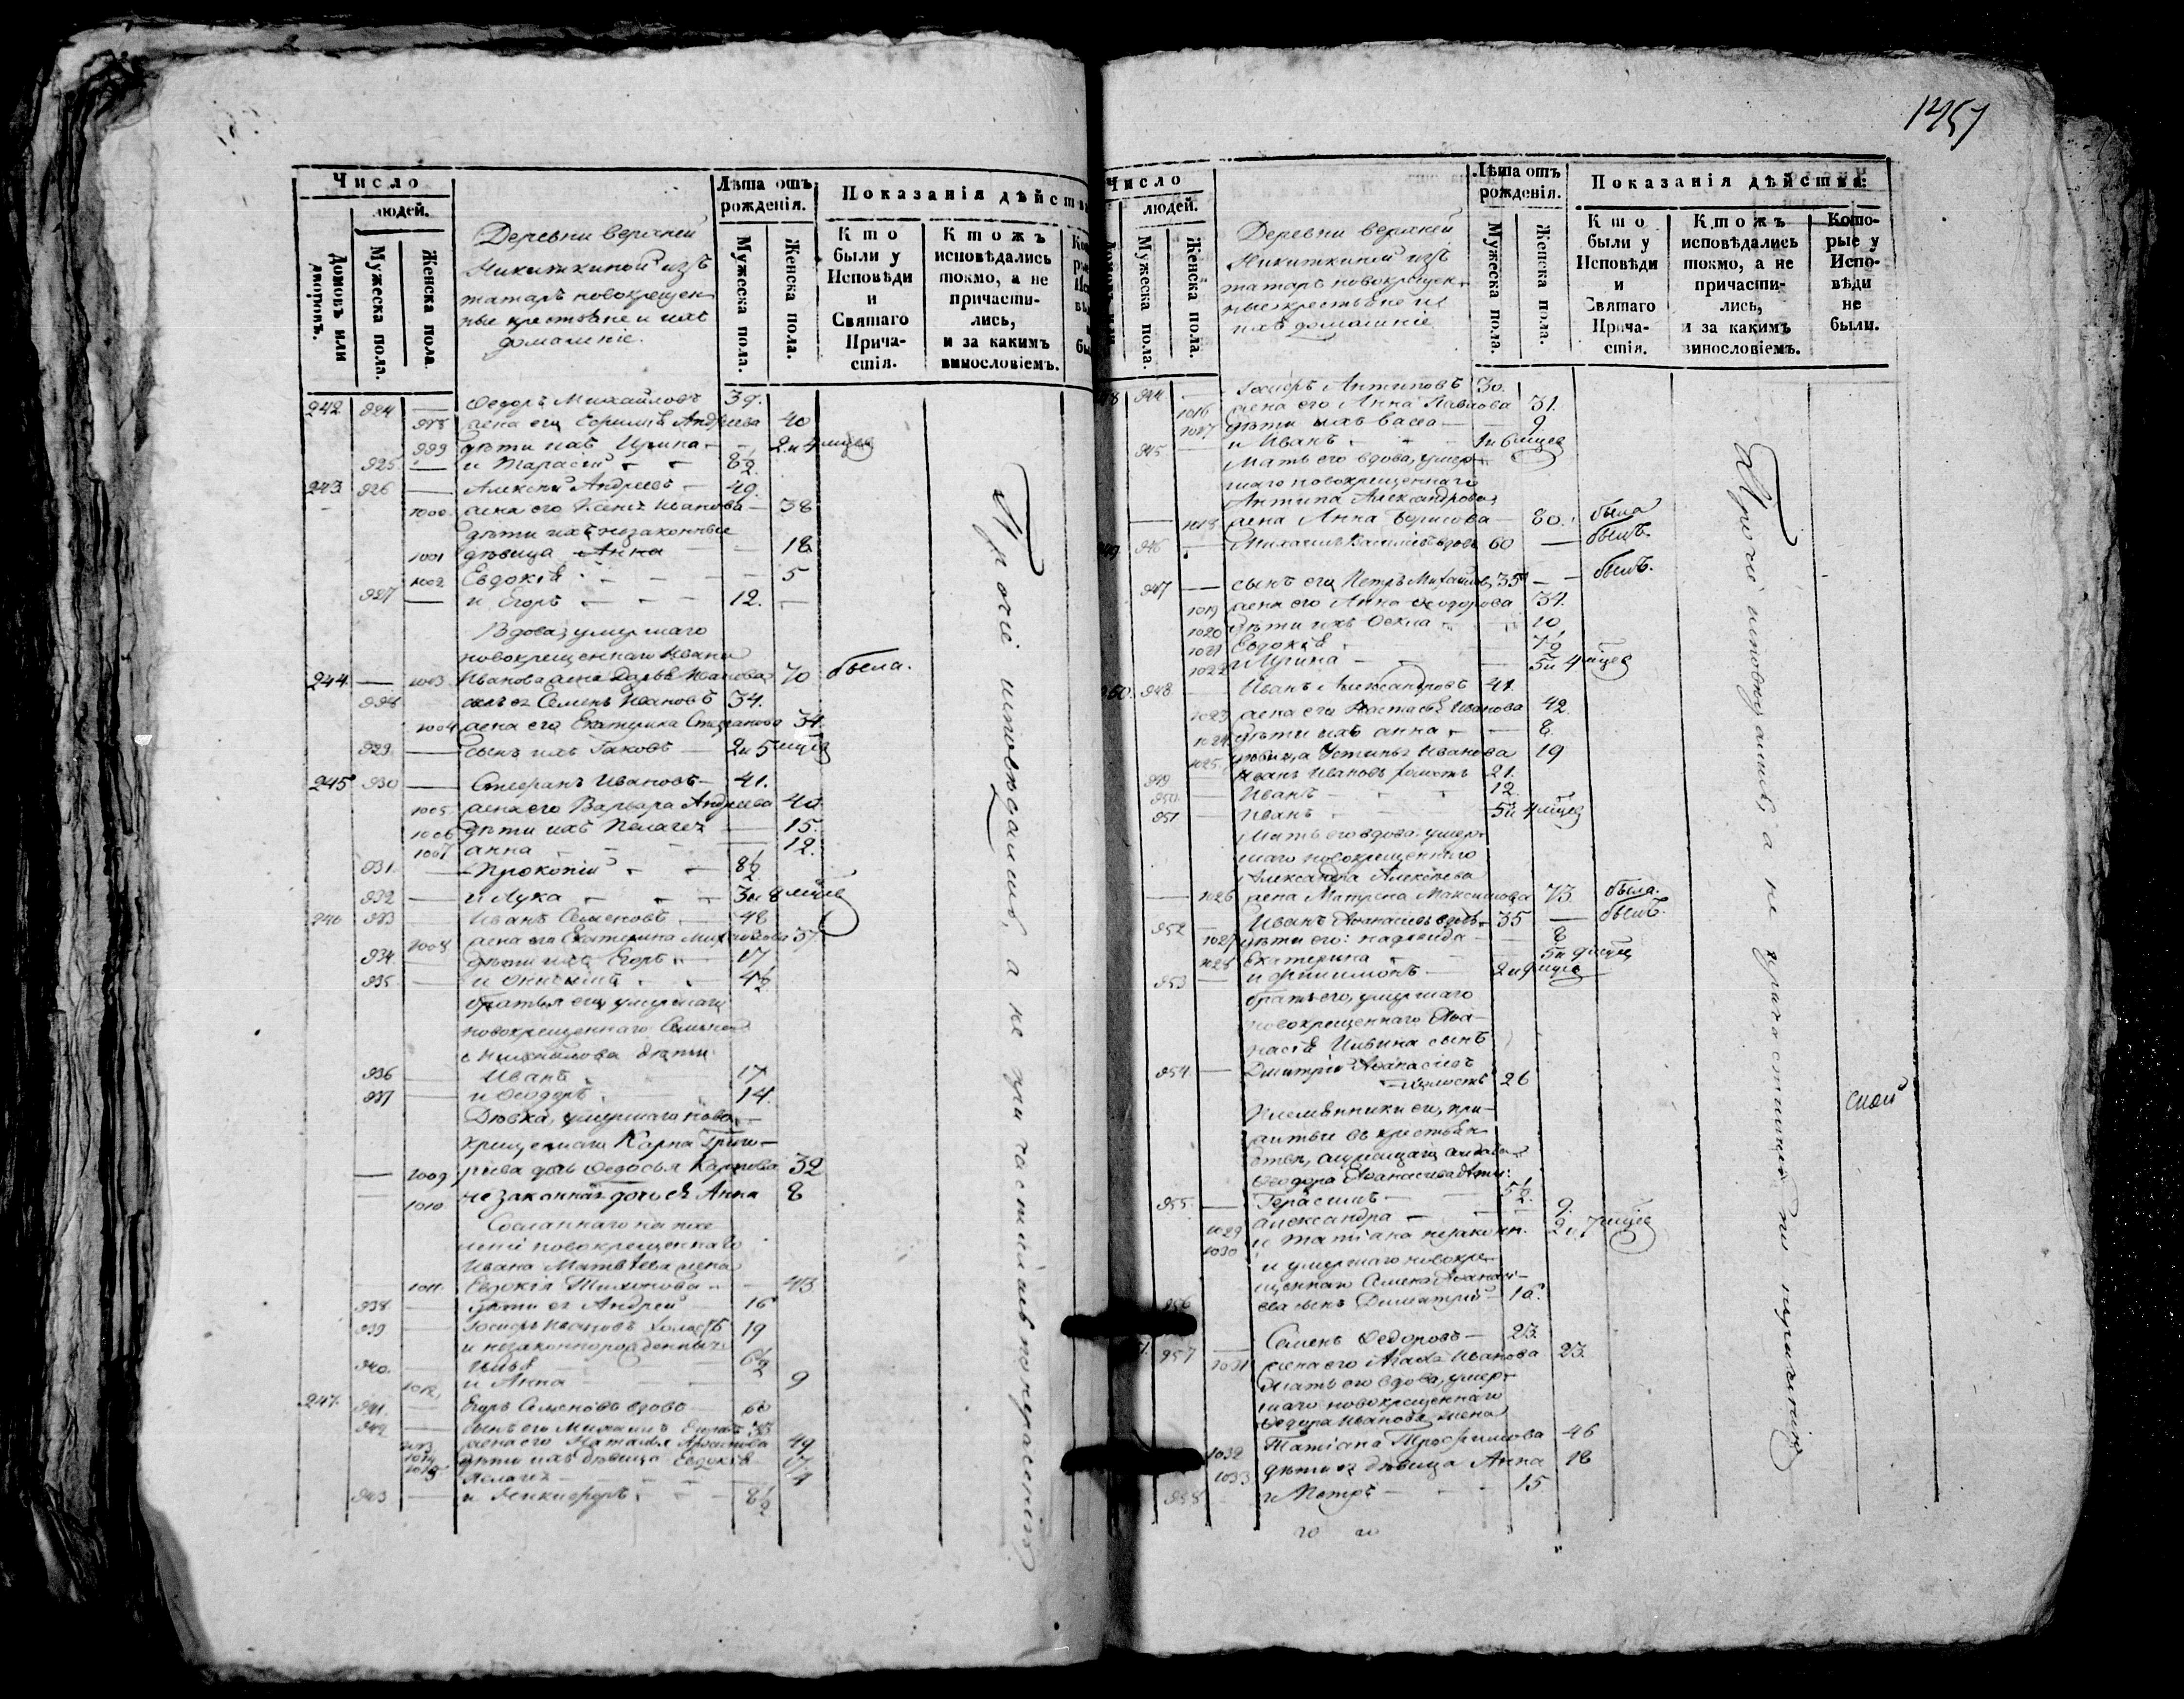 Число
людей.
Домовъ или дворовъ.
Мужеска пола.
Женска пола.
Деревни верхней
Никиткиной изъ
татаръ новокрещен
ные крестьяне и ихъ
домашніе.
Лѣта отъ
рожденія.
Мужеска пола.
Женска пола.
Показанія дѣйств
Кто
были у
Исповѣди
и
Святаго
Прича-
стія.
Ктожъ
исповѣдались
токмо, а не
причасти-
лись,
и за какимъ
винословіемъ.
242 924 — Ѳедоръ Михайловъ 39.
998 жена его Андреева 40
999 дѣти ихъ Ирина — 2 и 4 мцев
925 — и Тарасій 8½
243 926 — Алексѣй Андреевъ — 49.
1000 жена его Ивановна — 38
дѣти ихъ незаконные
1001 дѣвица Анна — 18
1002 Евдокія — 5
927 — и Егоръ — 12.
Вдова, умершаго
новокрещеннаго Ивана
244 — 1003 Иванова жена Дарья Иванова 70 была.
928 сынъ ея Семенъ Ивановъ 34.
1004 жена его Екатерина Степанова 34.
929 — сынъ ихъ Іаковъ — 2 и 5 мцев
245 930 — Стефанъ Ивановъ — 41.
1005 жена его Варвара Андреева 40
1006 дѣти ихъ Пелагея — 15.
1007 анна — 12.
931. — Прокопій 8½
932 — и Лука — 3 и 8 мцев
246 933 — Иванъ Семеновъ — 48
1008 жена его Екатерина 37.
934 — дѣти ихъ Егоръ — 17
935 — и 4½
братья его, умершаго
новокрещеннаго Семена
Михайлова дѣти
936 — Иванъ 17
937 — и Ѳеодоръ — 14.
Дѣвка, умершаго ново-
крещенаго Карпа Григо-
— 1009 рьева дочь Ѳедосья Карпова 32
1010 незаконная дочь ея Анна 8
Сосланнаго на посе
леніе новокрещеннаго
Ивана Матвѣева жена
1011. Евдокія Тихонова — 43
938 — дѣти ея Андрей — 16
939 — Іосифъ Ивановъ холостъ 19
и незаконнорожденные
940. Илья — 6½
1012. и Анна — 9
247. 941. — Егоръ Семеновъ вдовъ 60
942 — сынъ его Михаилъ Егоровъ
1013 жена его Наталья 49
1014 дѣти ихъ дѣвица Евдокія 17
1015 Пелагея — 4
943 — и Никифоръ — 8½
Прочіе исповѣдались, а не причастились по нерасченію
1457
Число
людей.
Мужеска пола.
Женска пола.
Деревни верхней
Никиткиной изъ
татаръ новокрещен-
ные крестьяне и
ихъ домашніе
Лѣта отъ
рожденія.
Мужеска пола.
Женска пола.
Показанія дѣйства:
Кто
были у
Исповѣди
и
Святаго
Прича-
стія.
Ктожъ
исповѣдались
токмо, а не
причасти-
лись,
и за какимъ
винословіемъ.
Кото-
рые у
Испо-
вѣди
не
были.
944 — Іосифъ Антиповъ 30.
1016 жена его Анна Павлова 31.
1017 дѣти ихъ Васса — 9
945 — и Иванъ — 1 и 6 мцев
Мать его вдова, умер-
шаго новокрещеннаго
Антипа Александрова
— 1018 жена Анна Борисова — 80. была
946 — Михаилъ вдовъ 60 — былъ.
947 — сынъ его Петръ Михайловъ 35 — былъ.
1019 жена его Анна Ѳеодорова 34.
1020 дѣти ихъ Ѳекла — 10
1021 Евдокія 7½
1022 и Ирина — 5 и 4 мцев
948 Иванъ Александровъ 41.
1023 жена его Настасья Иванова 42.
1024 дѣти ихъ анна — 8.
1025 дѣвица Устинья Иванова 19
949 — Иванъ Ивановъ холостъ 21.
950 — Иванъ — 12
951 — Иванъ 5 и 4 мцев
Мать его вдова умер-
шаго новокрещеннаго
Александра Алексѣева
— 1026 жена Матрена Максимова 73. была.
952 — Иванъ Аѳанасьевъ вдовъ 35 — былъ.
1027 дѣти его: надежда — 8
1028 Екатерина — 5 и 9 мцев
953 — и Филимонъ — 2 и 9 мцев
братъ его, умершаго
новокрещеннаго Аѳа-
насія Ильина сынъ
954 — Дмитрій Аѳанасьевъ
холостъ 26
Племянники его, при-
житые въ крестьян
ствѣ,
Ѳеодора Аѳанасьева дѣти:
955 — Герасимъ — 5½.
1029 александра — 9.
1030 и татіана незаконн. 2 и 7 мцев
и умершаго новокре-
щеннаго Семена Аѳанась-
956 ева сынъ Димитрій — 16.
957 — Семенъ Ѳедоровъ — 23.
1031 жена его Агаѳья Иванова 23.
Мать его вдова, умер-
шаго новокрещеннаго
Ѳедора Иванова жена
1032 Татіана Трофимова 46
1033 дѣти ея дѣвица Анна 18
958 и Петръ — 15
Прочіе исповѣдались, а не причастились по нерасченію